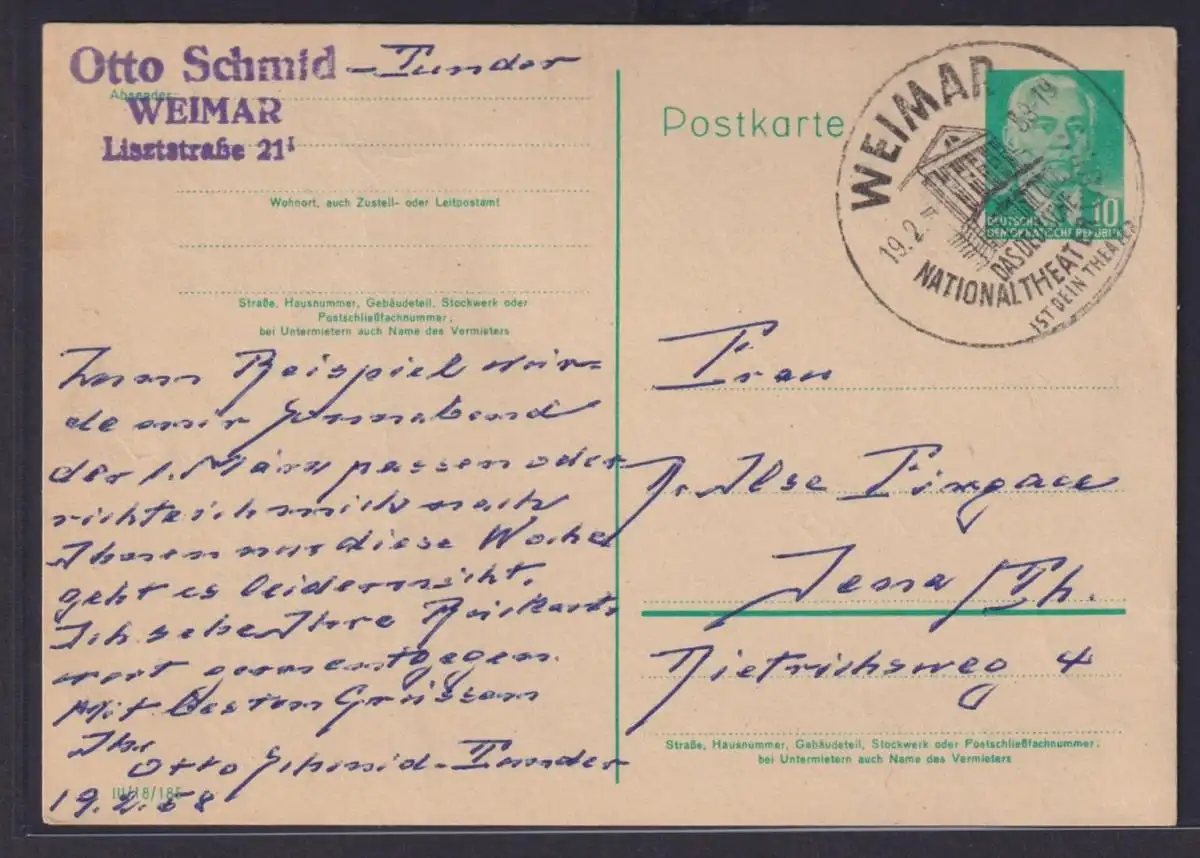 Otto Schmid - Tunder
Absender:
WEIMAR
Lisztstraße 21I
Wohnort, auch Zustell- oder Leitpostamt
Straße, Hausnummer, Gebäudeteil, Stockwerk oder
Postschließfachnummer;
bei Untermietern auch Name des Vermieters
Zum Beispiel wür-
de mir Sonnabend
der 1. März passen oder
richte ich mich nach
Ihnen nur diese Woche
geht es leider nicht.
Ich sehe Ihre
gern entgegen.
Mit besten Grüssen
Ihr
Otto Schmid-Tunder
19.2.58
III/18/185
Postkarte
WEIMAR
19.2.
DAS DEUTSCHE
NATIONALTHEATER
IST DEIN THEATER
10
DEUTSCHE
DEMOKRATISCHE REPUBLIK
Frau
Dr. Ilse
Jena/Th.
Dietrichsweg 4
Straße, Hausnummer, Gebäudeteil, Stockwerk oder Postschließfachnummer;
bei Untermietern auch Name des Vermieters